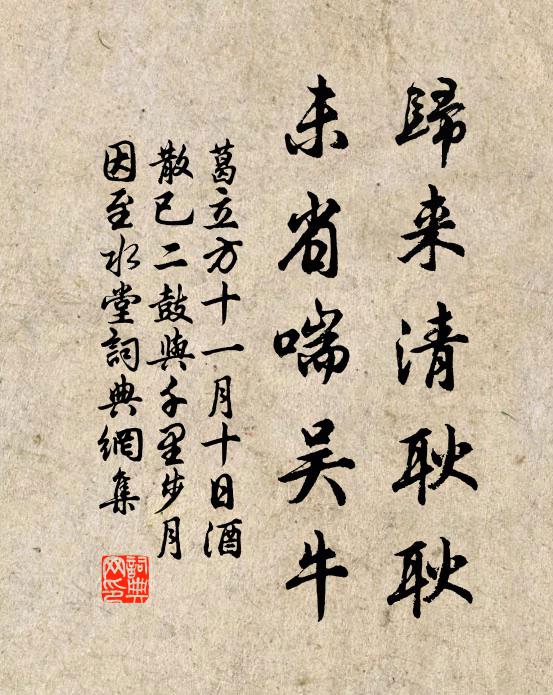 歸来清耿耿
未省喘吴牛
葛立方十一月十日酒
散已二鼓與千里步月
因至水堂詞典網集
詞典
网印